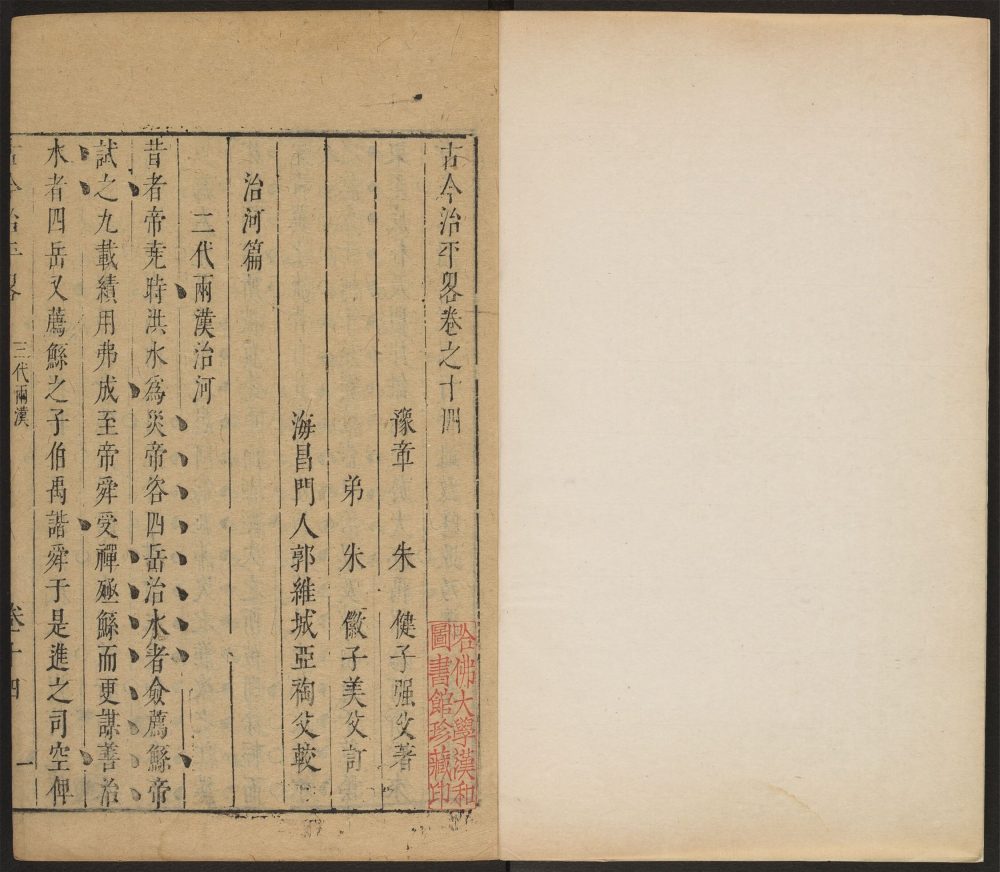 古今治平畧卷之十四
豫章　朱　健子强父著
弟　朱　徽子美父訂
海昌門人郭維城亞陶父較
治河篇
三代兩漢治河
昔者帝堯時洪水爲災帝咨四岳治水者僉薦鯀帝
試之九載績用弗成至帝舜受禪殛鯀而更謀善治
水者四岳又薦鯀之子伯禹諧舜于是進之司空俾
古今治平畧　三代兩漢　卷十四　一
哈佛大學漢和
圖書館珍藏印